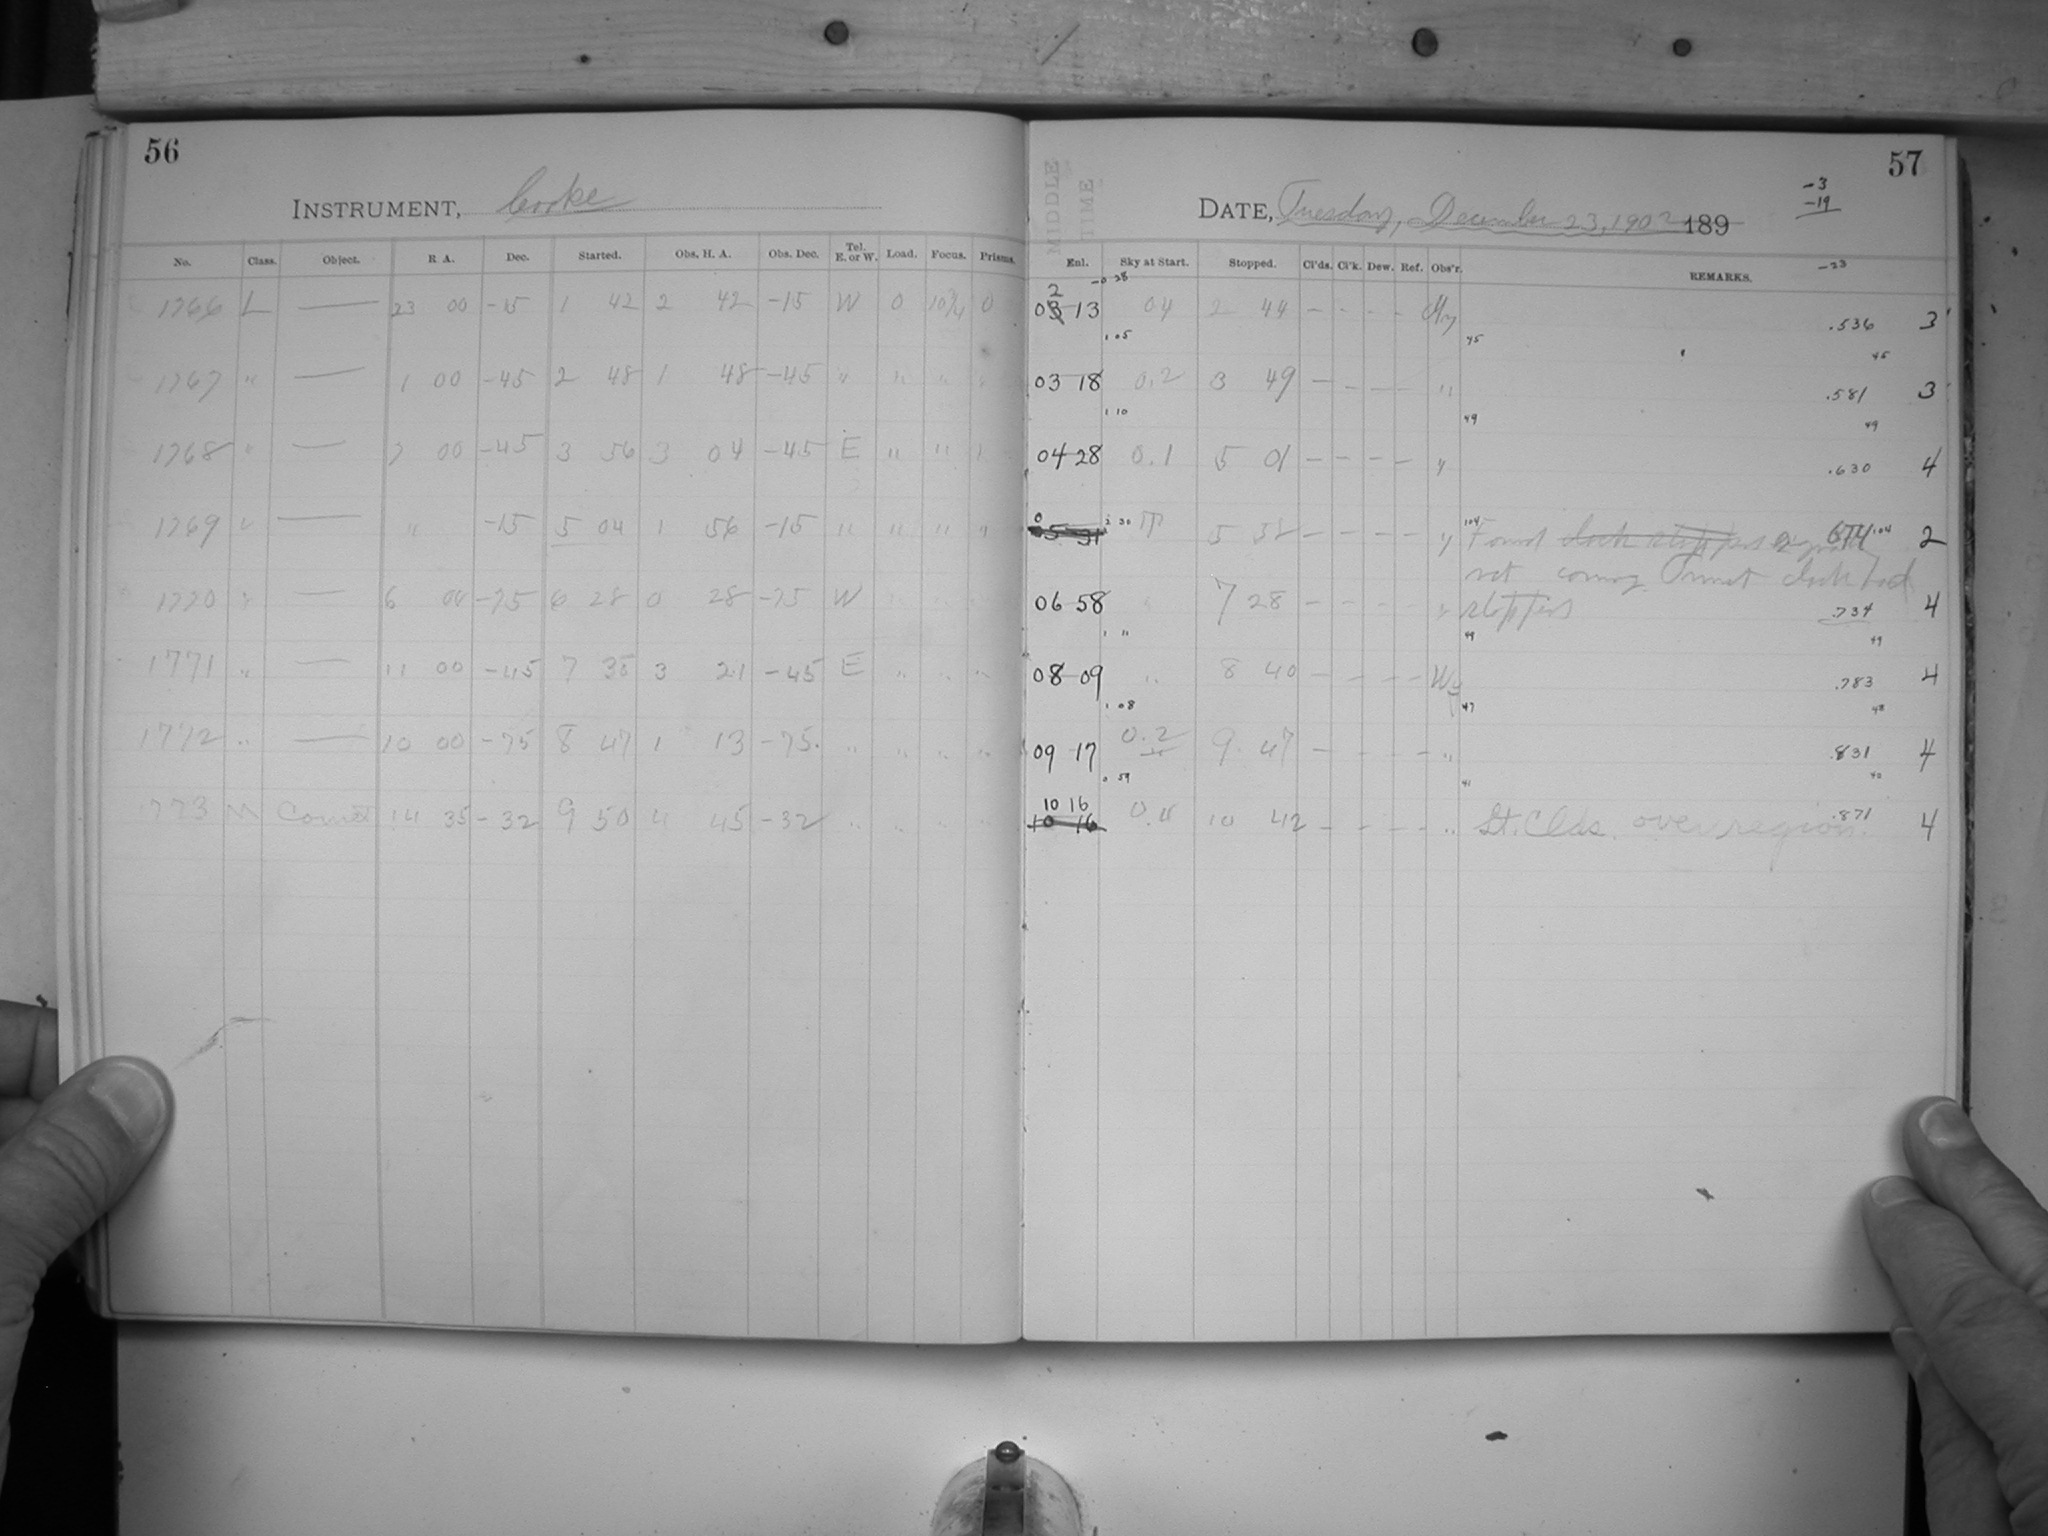 56
INSTRUMENT, Cooke
No. Class. Object. R A. Dec. Started. Obs. H. A. Obs. Dec. Tel. E. or W. Load. Focus. Prisms.
1766 L — 23 00 -15 1 42 2 42 -15 W 0 0
1767 " — 1 00 -45 2 48 1 48 -45 " " " "
1768 " — 7 00 -45 3 56 3 04 -45 E " " "
1769 " — " -15 5 04 1 56 -15 " " " "
1770 " — 6 00 -75 6 28 0 28 -75 W
1771 " — 11 00 -45 7 35 3 21 -45 E " " "
1772 " — 10 00 -75 8 47 1 13 -75. " " " "
1773 M Comet 14 35 -32 9 50 4 45 -32 " " " "
57
MIDDLE
TIME
-3
-19
DATE, Tuesday, December 23, 1902 189
Enl. Sky at Start. Stopped. Cl'ds. Cl'k. Dew. Ref. Obs'r. REMARKS. -23
2 -0 28
03 13 04 2 44 - - - - .536 3
1 05 45 45
03 18 0.2 3 49 - - - - " .581 3
1 10 49 49
04 28 0.1 5 01 - - - - " .630 4
2 30 104 104
5 31 5 38 - - - - " Found clock stopped 2
not Found clock had
06 58 " 7 28 - - - - " stopped .734 4
1 11 49 49
08 09 " 8 40 - - - - .783 4
1 08 47 48
09 17 0.2 9 47 - - - - " .831 4
0 59 41 40
10 16 .871
10 16 10 42 - - - - " Lt. Clds. over region. 4